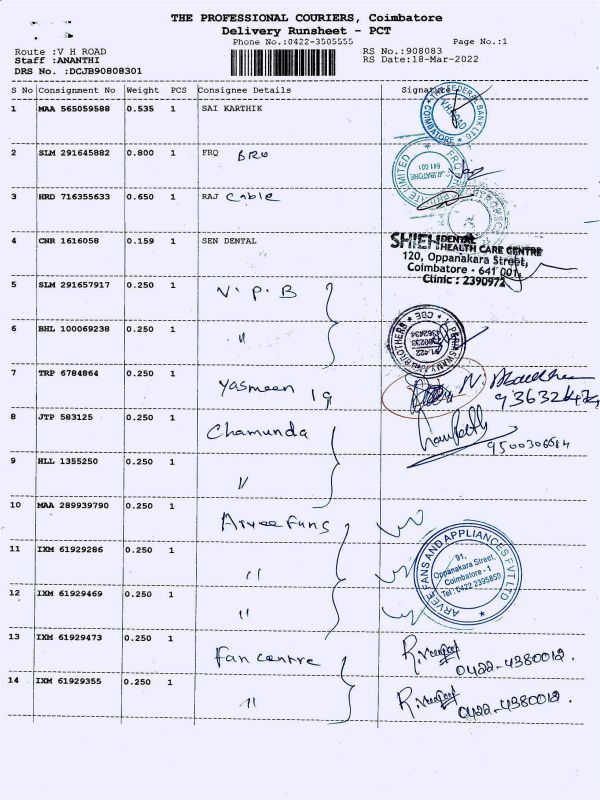 THE PROFESSIONAL COURIERS, Coimbatore
Delivery Runsheet - PCT
Phone No.:0422-3505555 Page No.:1
Route :V H ROAD RS No.:908083
Staff :ANANTHI RS Date:18-Mar-2022
DRS No. :DCJB90808301
S No Consignment No Weight PCS Consignee Details Signature
1 MAA 565059588 0.535 1 SAI KARTHIK
THE FEDERAL BANK LTD. COIMBATORE V.H. ROAD
2 SLM 291645882 0.800 1 FRQ BRO
3 HRD 716355633 0.650 1 RAJ Cable
4 CNR 1616058 0.159 1 SEN DENTAL
SHIEH DENTAL HEALTH CARE CENTRE
120, Oppanakara Street,
Coimbatore - 641 001.
Clinic : 2390972
5 SLM 291657917 0.250 1 V. P. B
6 BHL 100069238 0.250 1 "
7 TRP 6784864 0.250 1 Yasmeen
8 JTP 583125 0.250 1 Chamunda
9500306614
9 HLL 1355250 0.250 1 "
10 MAA 289939790 0.250 1 Arvee Fans
11 IXM 61929286 0.250 1 "
ARVEE FANS AND APPLIANCES PVT LTD
91,
Oppanakara Street,
Coimbatore - 1
Tel: 0422 2395850
12 IXM 61929469 0.250 1 "
13 IXM 61929473 0.250 1 Fan centre
0422-4380012.
14 IXM 61929355 0.250 1 "
0422-4380012.